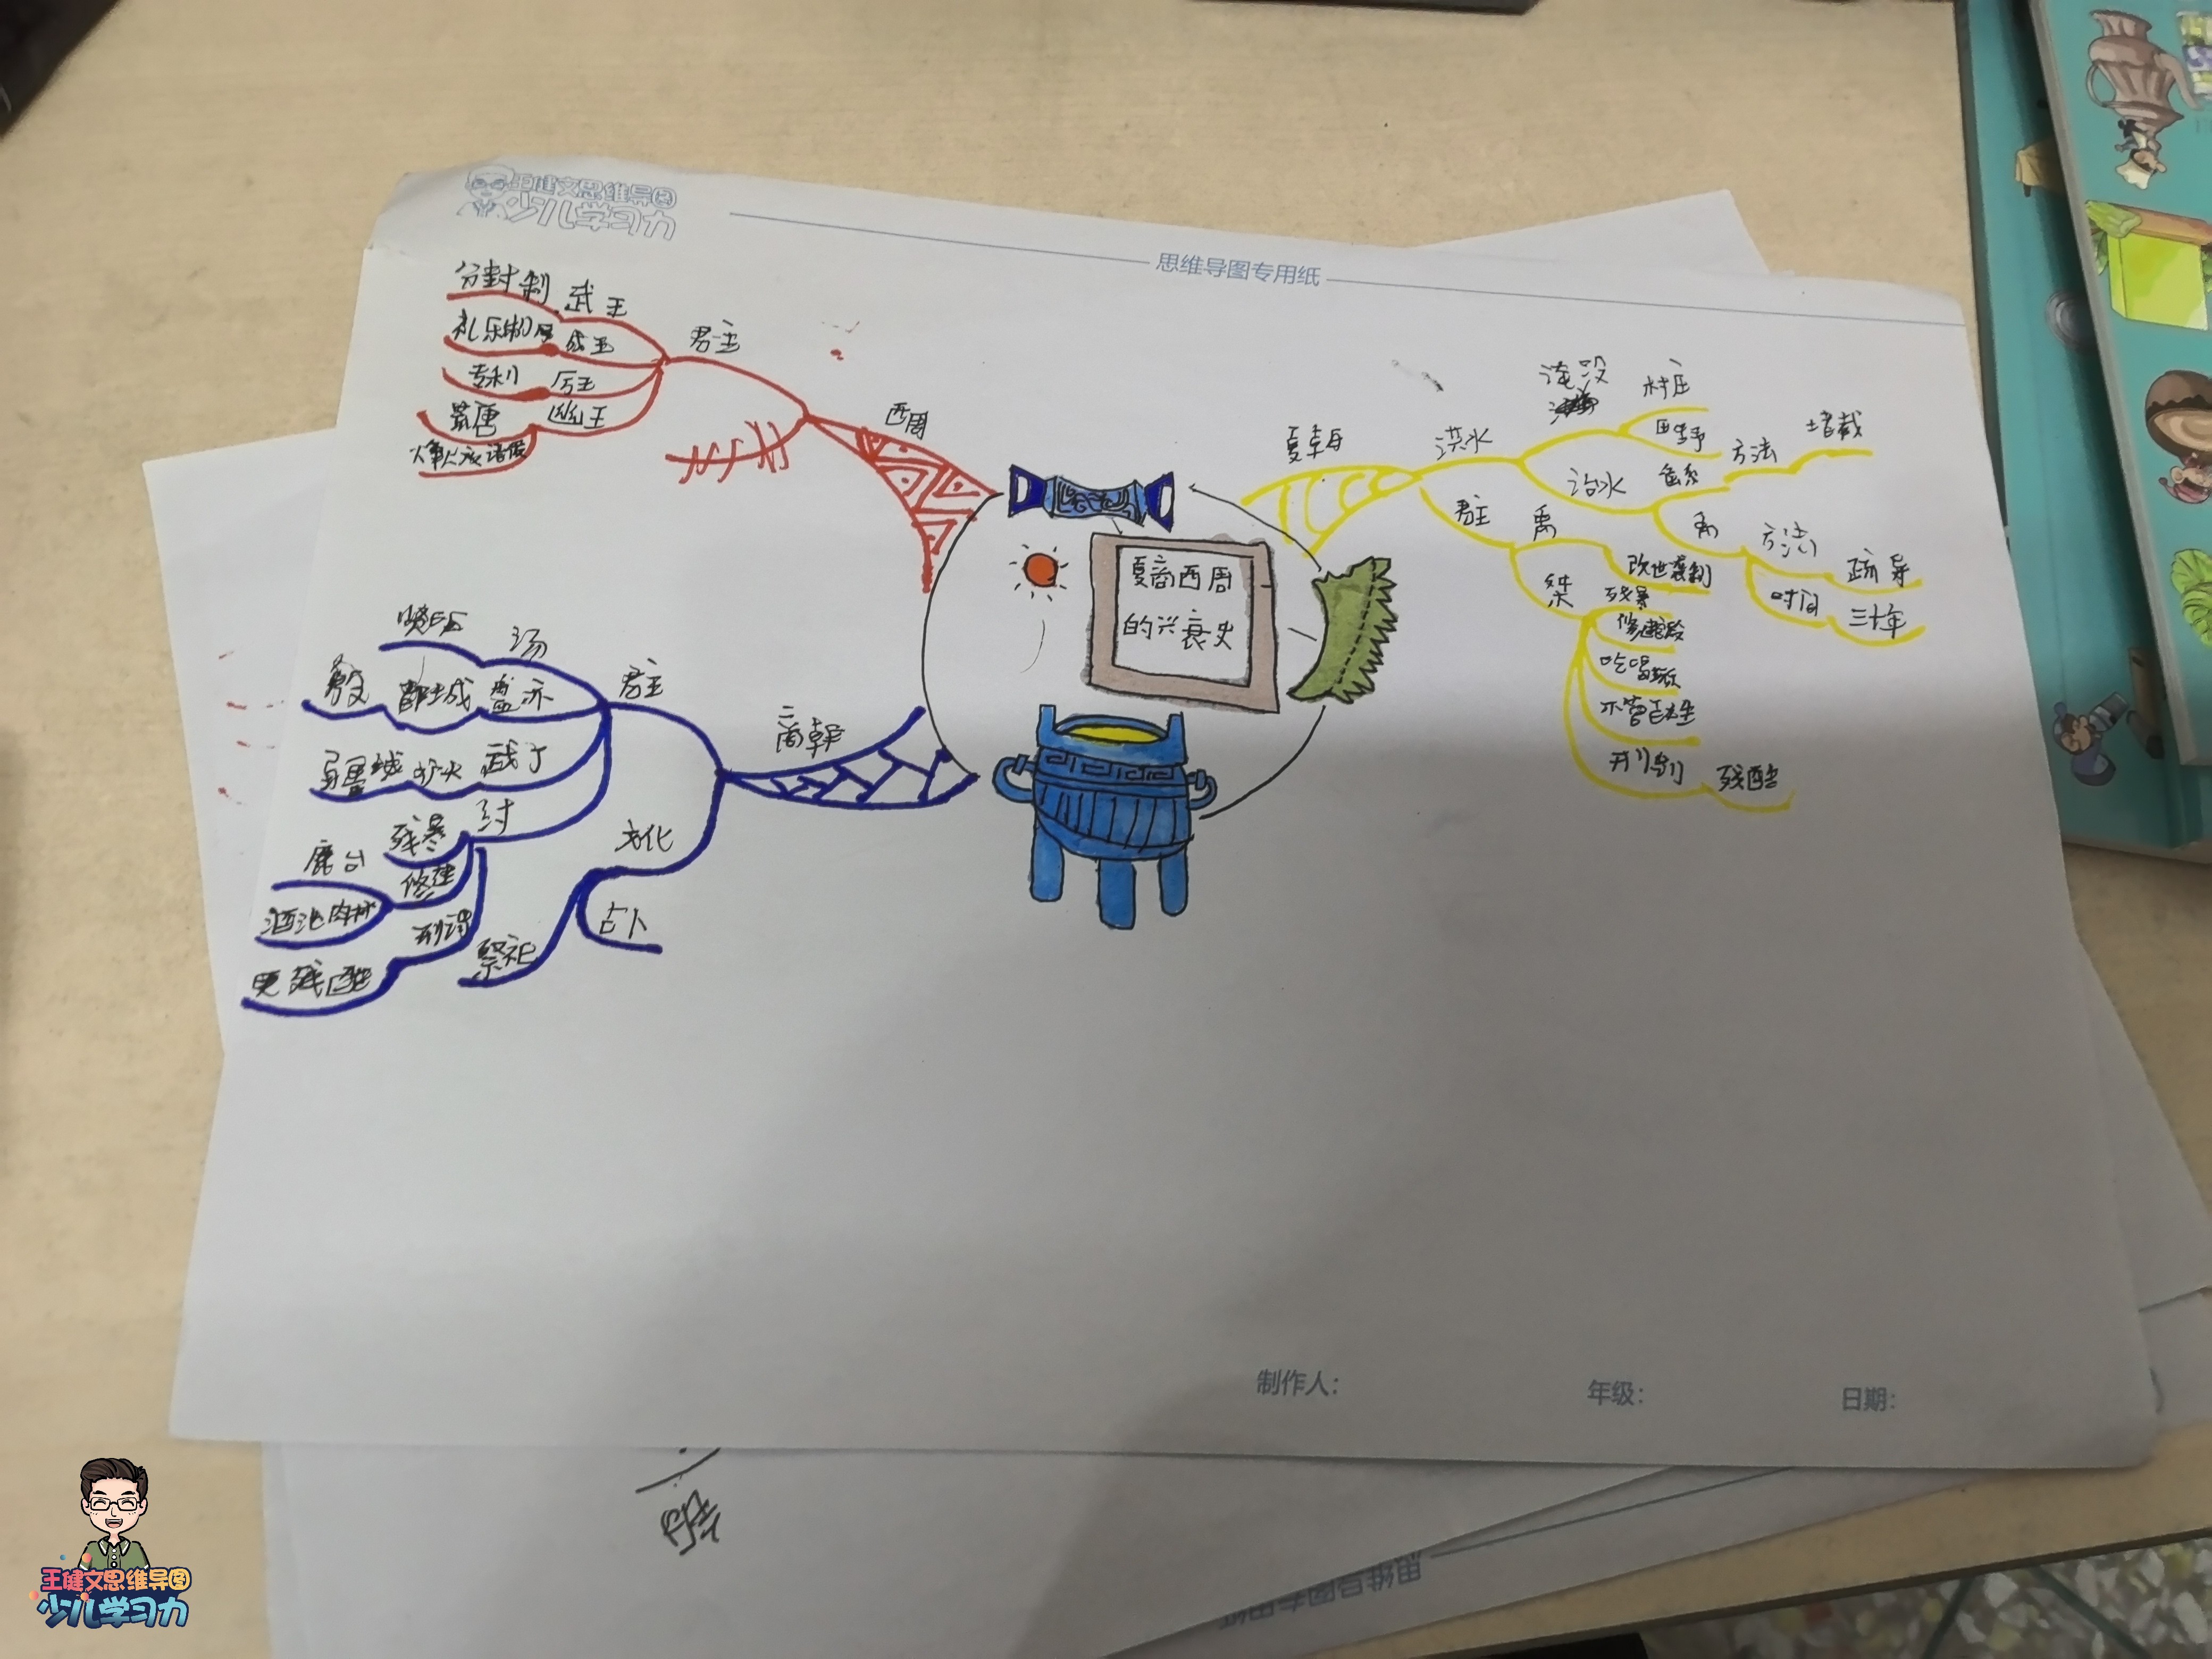 王健文思维导图
少儿学习力
思维导图专用纸
夏商西周
的兴衰史
夏朝
洪水
淹没
村庄
田野
治水
鲧
方法
堵截
禹
方法
疏导
时间
三十年
君主
禹
改世袭制
桀
残暴
修建宫殿
吃喝玩
不管百姓
刑罚
残酷
商朝
君主
汤
盘庚
都城
殷
武丁
扩大
疆域
纣
残暴
修建
鹿台
酒池肉林
刑罚
更残酷
文化
占卜
祭祀
西周
君主
武王
分封制
成王
礼乐制度
厉王
专利
幽王
荒唐
烽火戏诸侯
制作人：
年级：
日期：
思维导图专用纸
王健文思维导图
少儿学习力